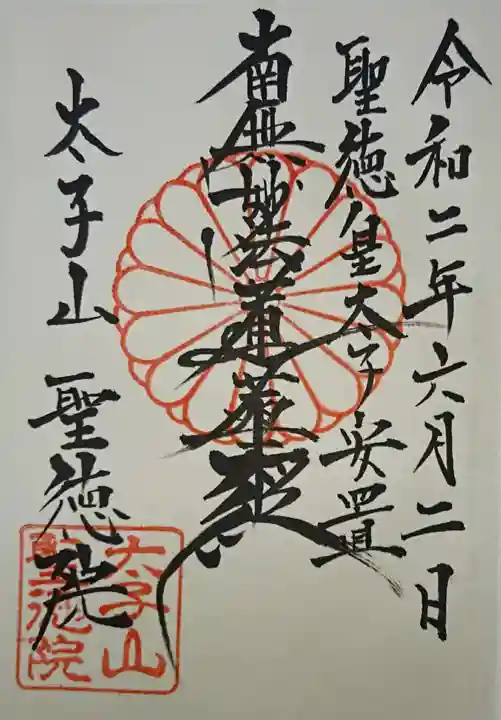 令和二年六月二日
聖徳皇太子安置
南無妙法蓮華経
太子山 聖徳院
太子山
聖徳院